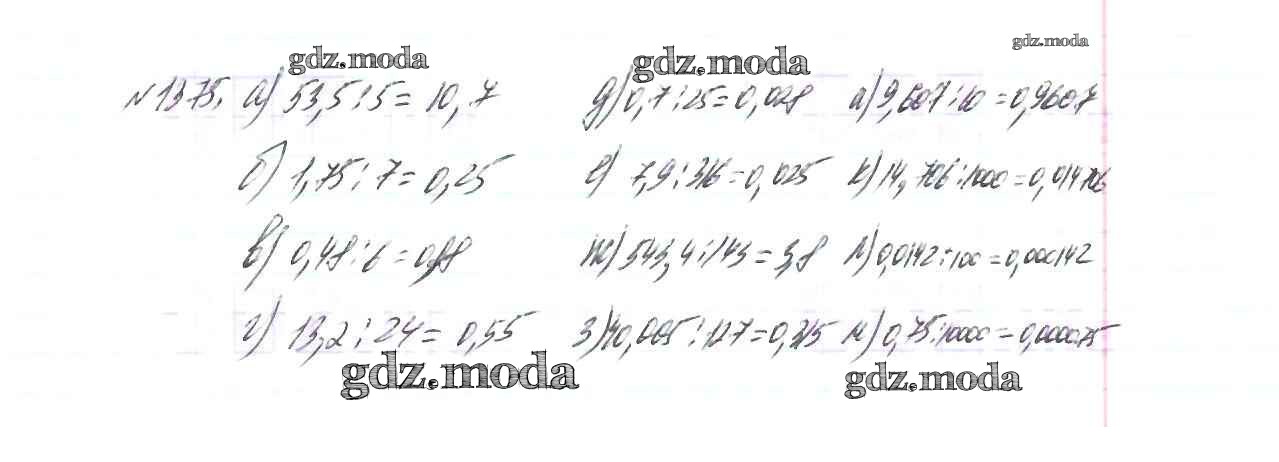 gdz.moda gdz.moda gdz.moda
№1375. а) 53,5:5=10,7 д) 0,7:25=0,028 и) 9,607:10=0,9607
б) 1,75:7=0,25 е) 7,9:316=0,025 к) 14,706:1000=0,014706
в) 0,48:6= ж) 543,4:143=3,8 л) 0,0142:100=0,000142
г) 13,2:24=0,55 з) 40,005:127=0,315 м) 0,75:10000=0,000075
gdz.moda gdz.moda